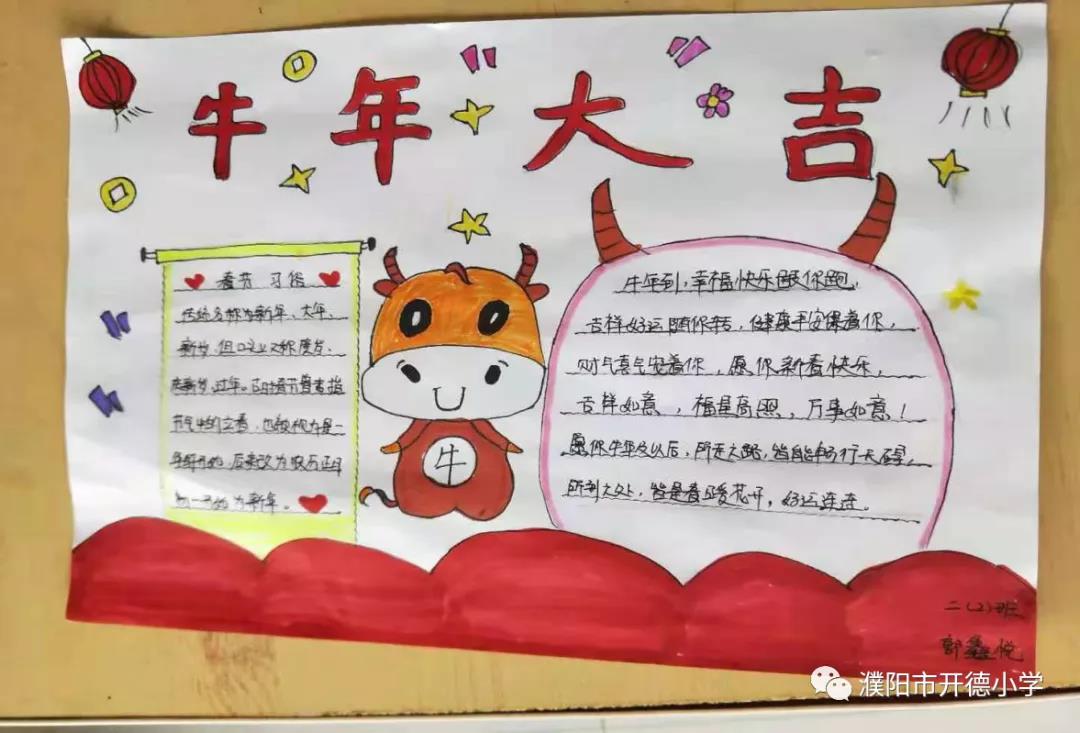 牛年大吉
春节 习俗
传统名称为新年、大年、
新岁，但口头上又称度岁、
庆新岁、过年。古时春节曾专指
节气中的立春，也被视为是一
年的开始，后来改为农历正月
初一开始为新年。
牛
牛年到，幸福快乐跟你跑，
吉祥好运随你转，健康平安保着你，
财气喜气安着你，愿你新春快乐，
吉祥如意，福星高照，万事如意！
愿你牛年及以后，所走之路，皆能畅行无碍，
所到之处，皆是春暖花开，好运连连。
二（2）班
郭鑫悦
濮阳市开德小学